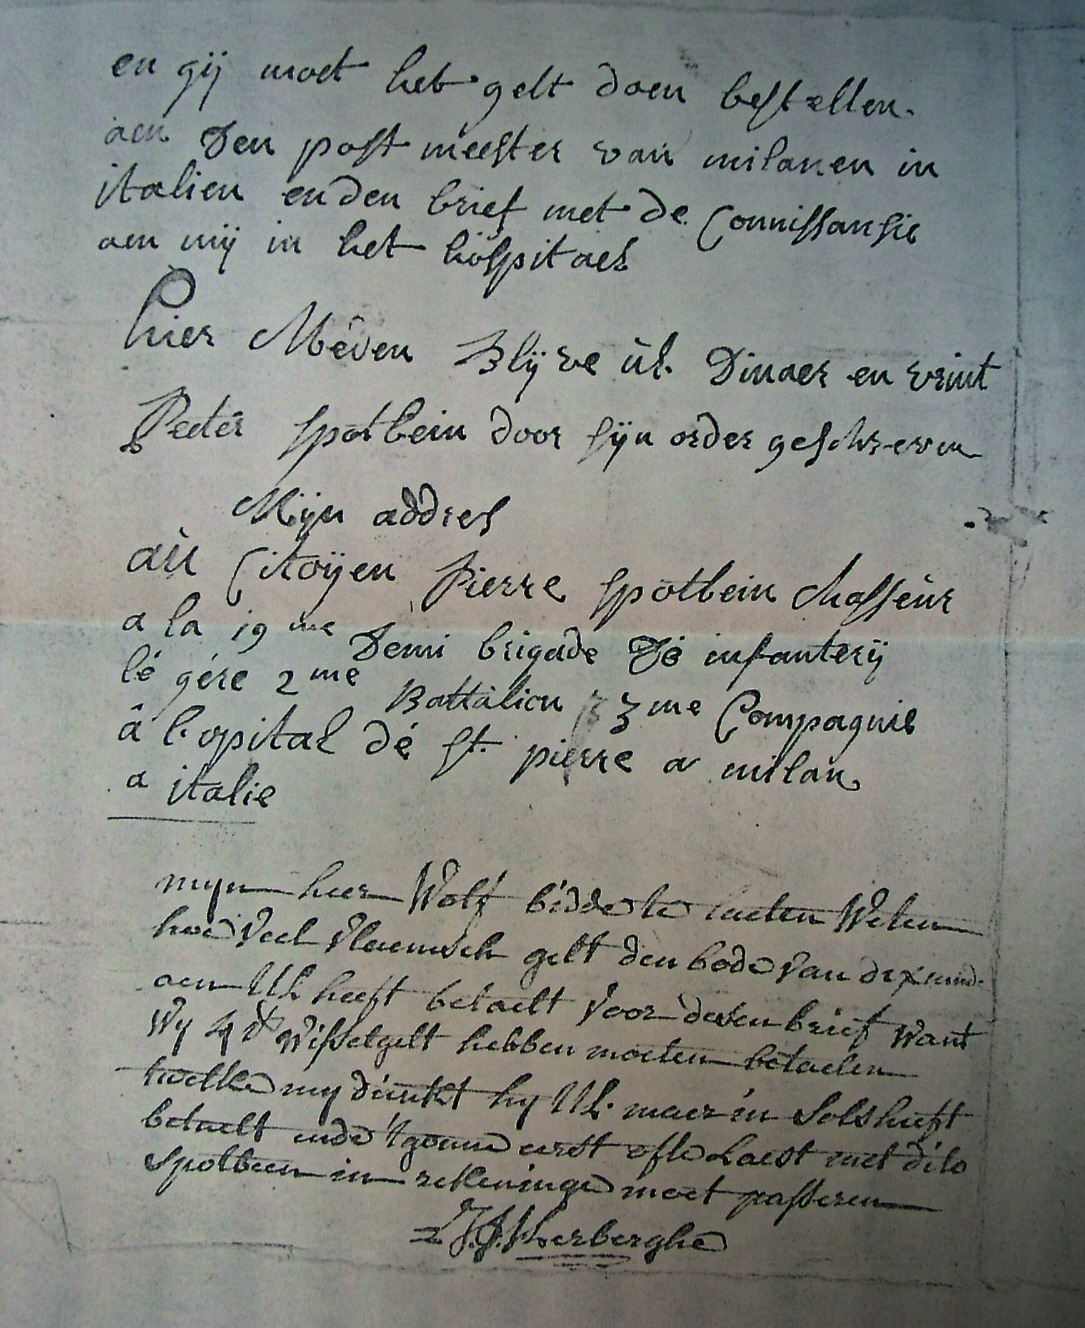 en gij moet het gelt doen bestellen.
aen den post meester van milanen in
italien en den brief met de Connissansie
aen mij in het hospitael
hier Mêden Blijve ul. Dinaer en vrint
Peeter spotbein door sijn order geschreven
Mijn addres
aù Citoÿen Pierre spotbein chasseur
a la 19me Demi brigade De infanterÿ
lé gére 2me Battalion 3me Compagnie
â l'opital dé st. pierre a milan
a italie
mijn heer Wolf bidde te laeten Weten
hoe veel vlaemsch gelt den bode van dixmude
aen Ul. heeft betaelt voor desen brief want
Wy 4 st Wisselgelt hebben moeten betaelen
twelke my dunkt hy Ul. maer in Sols heeft
betaelt ende 't gonne eerst ofte Laest met dito
spotbeen in rekeninge moet passeren
Verberghe